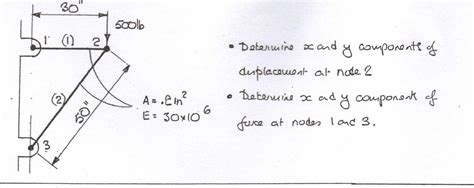 30"
500lb
1 (1) 2
(2)
50"
3
A = .2 in²
E = 30×10⁶
• Determine x and y components of
displacement at node 2
• Determine x and y component of
force at nodes 1 and 3.